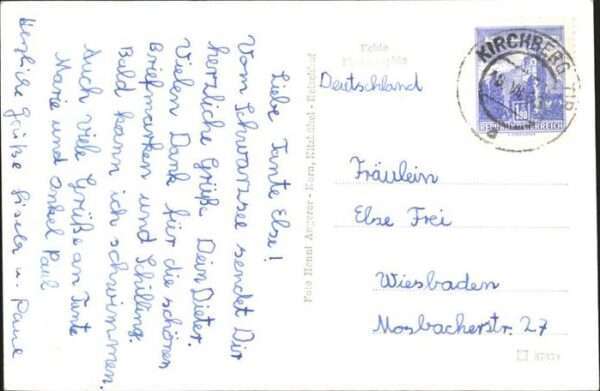 Liebe Tante Else!
Vom Schwarzsee sendet Dir
herzliche Grüße Dein Dieter.
Vielen Dank für die schönen
Briefmarken und Schilling.
Bald kann ich schwimmen.
Auch viele Grüße an Tante
Marie und Onkel Paul
Herzliche Grüße Gisela u. Paul
Foto Hansl Angerer - Kern, Kitzbühel -
Echte
Deutschland
KIRCHBERG TIR
REPUBLIK ÖSTERREICH
Fräulein
Else Frei
Wiesbaden
Mosbacherstr. 27